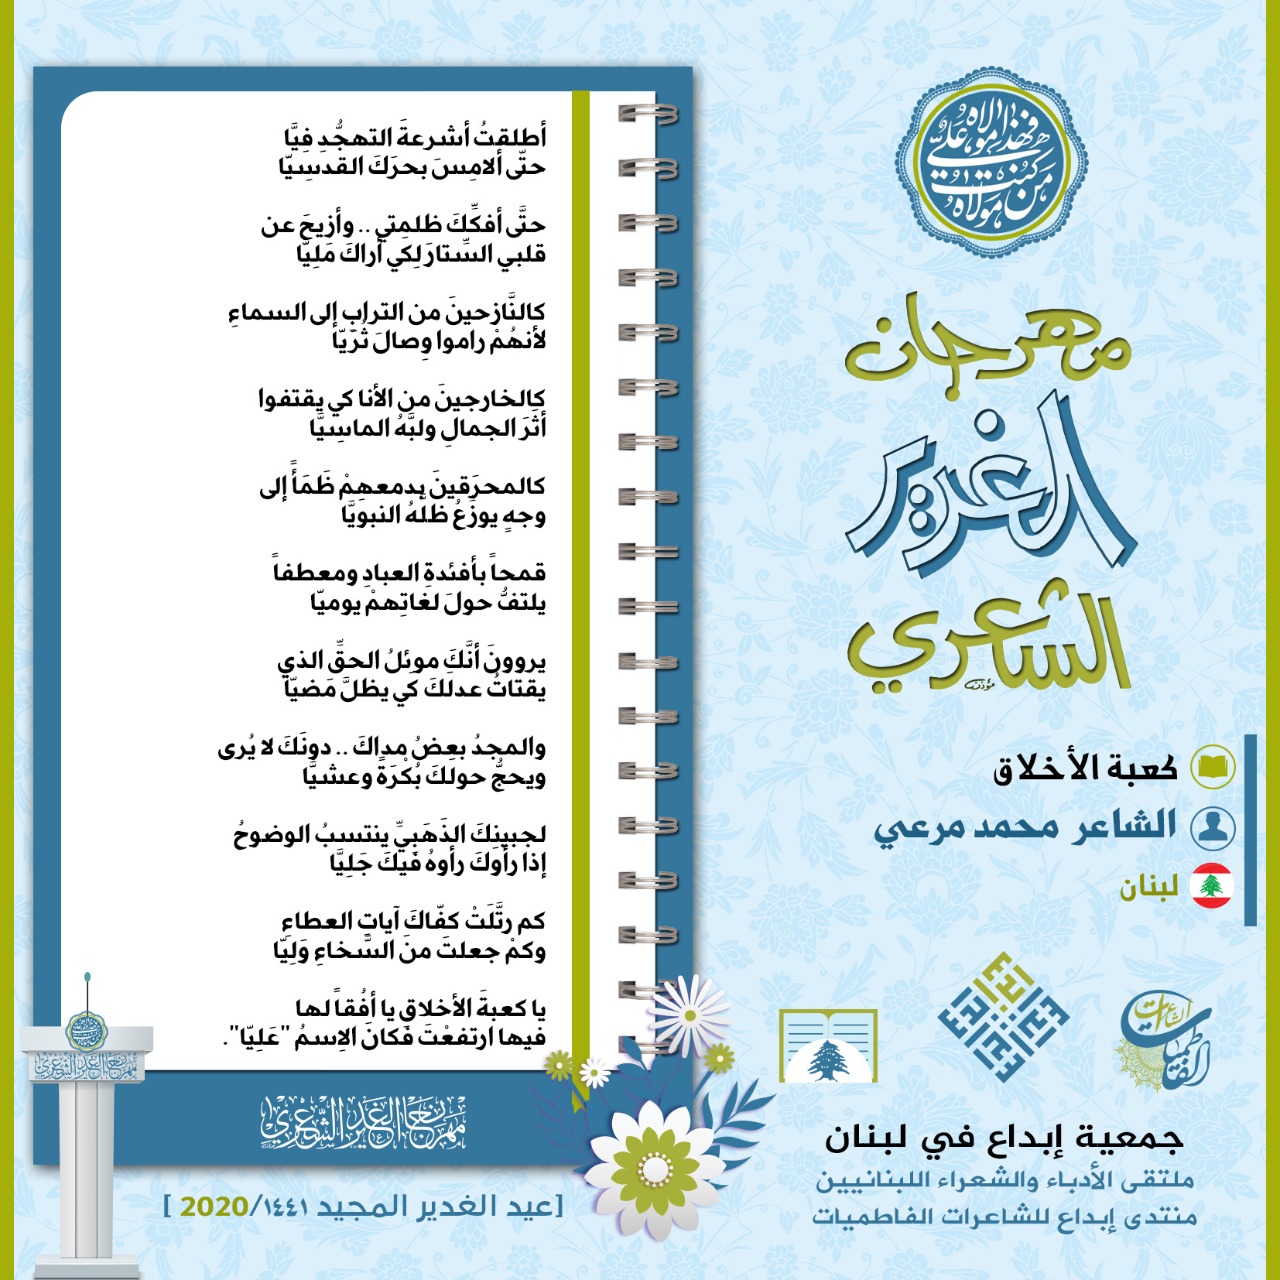 من كنت مولاه فهذا علي مولاه
مهرجان
الغدير
الشاعري
كعبة الأخلاق
الشاعر محمد مرعي
لبنان
أطلقتُ أشرعةَ التهجُّدِ فِيَّا
حتّى ألامِسَ بحرَكَ القدسِيّا
حتَّى أفكِّكَ ظلمتِي .. وأزيحَ عن
قلبي السِّتارَ لِكي أراكَ مَلِيّا
كالنَّازحينَ من الترابِ إلى السماءِ
لأنهُمْ راموا وِصالَ ثُرَيّا
كالخارجينَ من الأنا كي يقتفوا
أثَرَ الجمالِ ولبَّهُ الماسِيَّا
كالمحرَقينَ بِدمعهِمْ ظَمَأً إلى
وجهٍ يوزِّعُ ظلَّهُ النبويَّا
قمحاً بأفئدةِ العبادِ ومعطفاً
يلتفُّ حولَ لغاتِهِمْ يوميّا
يروونَ أنَّكَ موئلُ الحقِّ الذي
يقتاتُ عدلكَ كي يظلَّ مَضيّا
والمجدُ بعضُ مداكَ .. دونَكَ لا يُرى
ويحجُّ حولكَ بُكْرَةً وعشيَّا
لجبينِكَ الذَهَبيِّ ينتسبُ الوضوحُ
إذا رأوكَ رأوهُ فيكَ جَلِيَّا
كم رتَّلَتْ كفّاكَ آياتِ العطاءِ
وكمْ جعلتَ منَ السَّخاءِ وَلِيّا
يا كعبةَ الأخلاقِ يا أفُقاً لها
فيها ارتفعْتَ فكانَ الاِسمُ "عَلِيّا".
مهرجان الغدير الشعري
مهرجان الغدير الشعري
[عيد الغدير المجيد ١٤٤١/2020 ]
إبداع
الشاعرات
الفاطميات
جمعية إبداع في لبنان
ملتقى الأدباء والشعراء اللبنانيين
منتدى إبداع للشاعرات الفاطميات